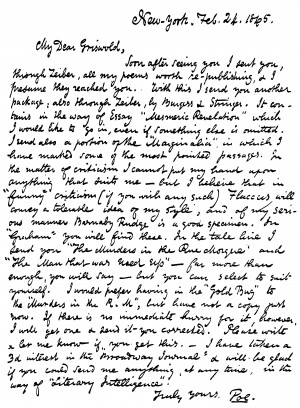 New-York, Feb. 24. 1845.
My Dear Griswold,
Soon after seeing you I sent you,
through Zeiber, all my poems worth re-publishing, & I
presume they reached you. With this I send you another
package, also through Zeiber, by Burgess & Stringer. It con-
tains in the way of Essay "Mesmeric Revelation" which
I would like to go in, even if something else is omitted.
I send also a portion of the "Marginalia", in which I
have marked some of the most pointed passages. In
the matter of criticism I cannot put my hand upon
anything that suits me — but I believe that in
"funny" criticism (if you wish any such) Flaccus will
convey a tolerable idea of my style, and of my seri-
ous manner Barnaby Rudge is a good specimen. In
"Graham" you will find these. In the tale line I
send you "The Murders in the Rue Morgue" and
"The Man that was used up" — far more than
enough, you will say — but you can select to suit
yourself. I would prefer having in the "Gold Bug" to
the "Murders in the R. M", but have not a copy just
now. If there is no immediate hurry for it, however,
I will get one & send it you corrected. Please write
& let me know if you get this. — I have taken a
3d interest in the "Broadway Journal" & will be glad
if you could send me anything, at any time, in the
way of "Literary Intelligence".
Truly yours.
Poe.